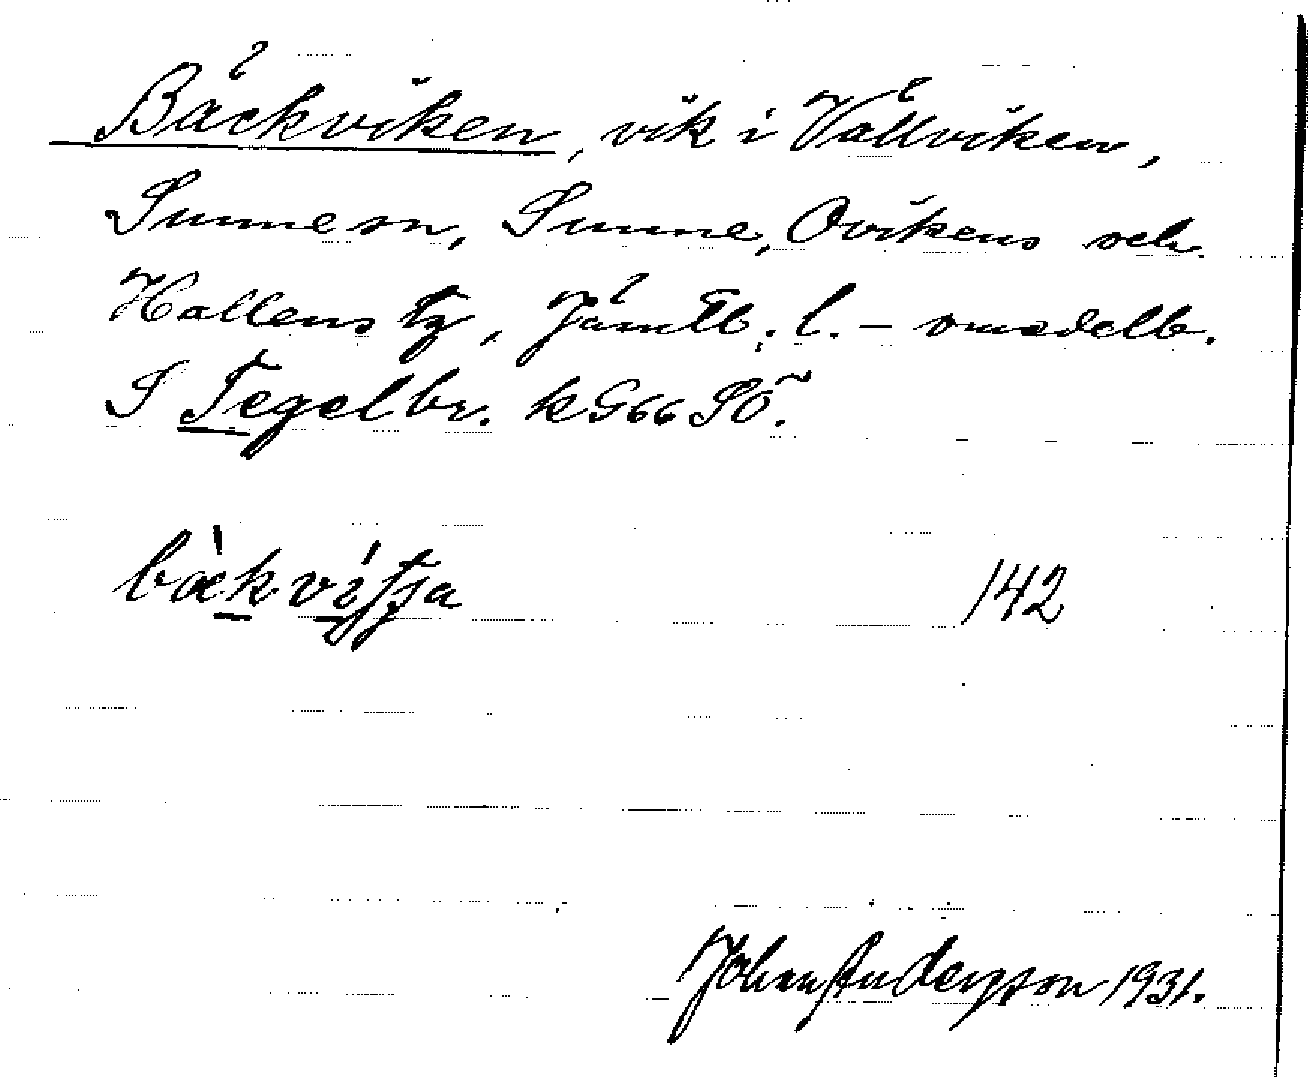 Bäckviken, vik i Vällviken,
Sunne sn, Sunne, Ovikens och
Hallens tg, Jämtl. l. – omedelb.
S Tegelbr. k G66 SÖ.
bäkvi 142
Johan Anderzson 1931.